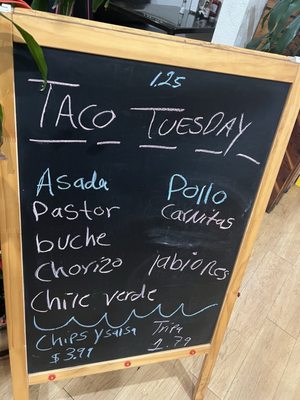 1.25
TACO TUESDAY
Asada Pollo
Pastor Carnitas
buche
Chorizo labiones
Chile verde
Chips y salsa Tripa
$3.99 1.79